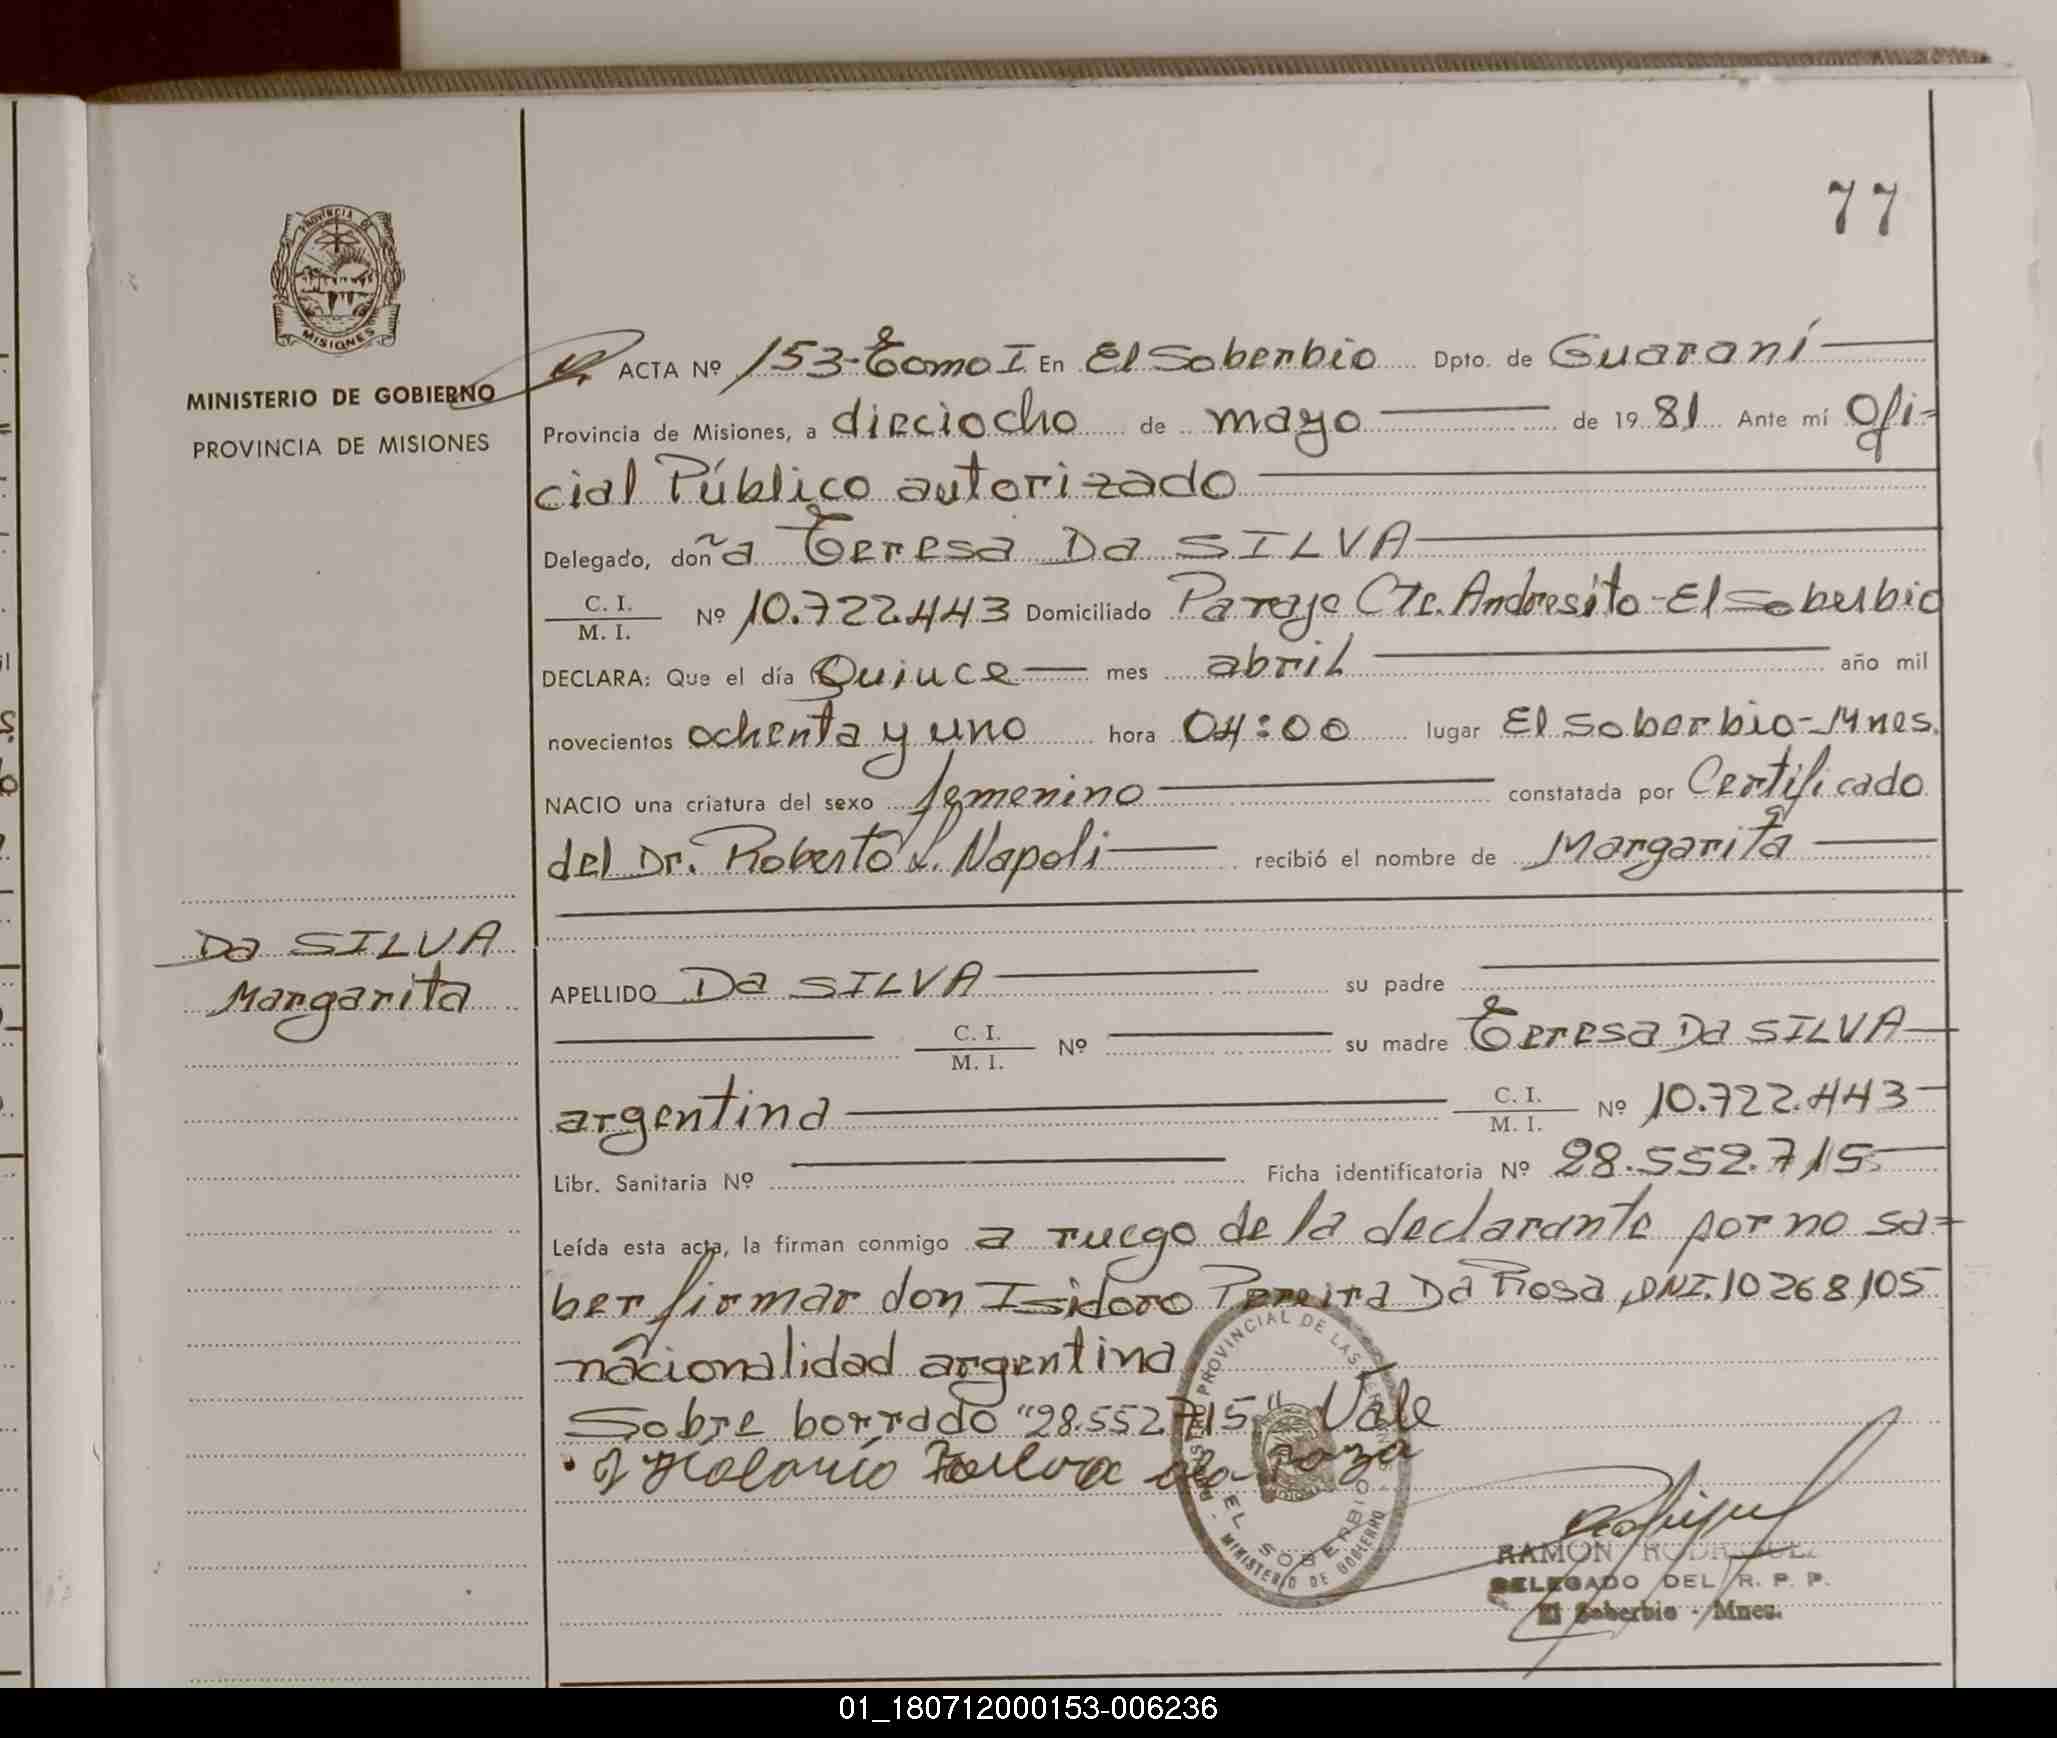 77
PROVINCIA DE
MISIONES
MINISTERIO DE GOBIERNO
PROVINCIA DE MISIONES
ACTA Nº 153-Tomo I En El Soberbio Dpto. de Guaraní
Provincia de Misiones, a dieciocho de mayo de 1981 Ante mí Ofi=
cial Público autorizado
Delegado, doña Teresa Da SILVA
C. I.
M. I. Nº 10.722.443 Domiciliado Paraje Cte. Andresito-El Soberbio
DECLARA: Que el día Quince mes abril año mil
novecientos ochenta y uno hora 04:00 lugar El Soberbio-Mnes.
NACIO una criatura del sexo femenino constatada por Certificado
del Dr. Roberto L. Napoli recibió el nombre de Margarita
Da SILVA
Margarita
APELLIDO Da SILVA su padre
C. I.
M. I. Nº su madre Teresa Da SILVA
argentina C. I.
M. I. Nº 10.722.443
Libr. Sanitaria Nº Ficha identificatoria Nº 28.552.715
Leída esta acta, la firman conmigo a ruego de la declarante por no sa=
ber firmar don Isidoro Pereira Da Rosa, DNI. 10268105
nacionalidad argentina
Sobre borrado "28.552.715" Vale
PROVINCIAL DE LAS
EL SOBERBIO
MINISTERIO DE GOBIERNO
RAMON RODRIGUEZ
DELEGADO DEL R. P. P.
El Soberbio - Mnes.
01_180712000153-006236